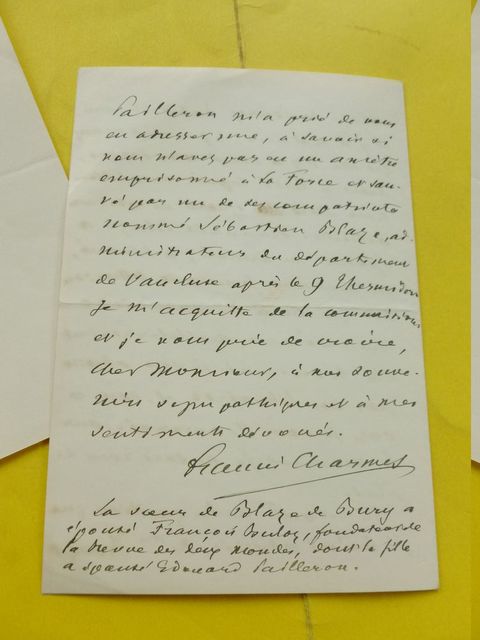 Pailleron m'a prié de vous
en adresser une, à savoir si
vous n'avez pas eu un ancêtre
emprisonné à La Force et sau-
vé par un de ses compatriotes
nommé Sébastien Blaze, ad-
ministrateur du département
de Vaucluse après le 9 Thermidor.
Je m'acquitte de la commission
et je vous prie de croire,
cher Monsieur, à mes souve-
nirs sympathiques et à mes
sentiments dévoués.
Francis Charmes
La sœur de Blaze de Bury a
épousé François Buloz, fondateur de
la Revue des deux mondes, dont la fille
a épousé Edouard Pailleron.